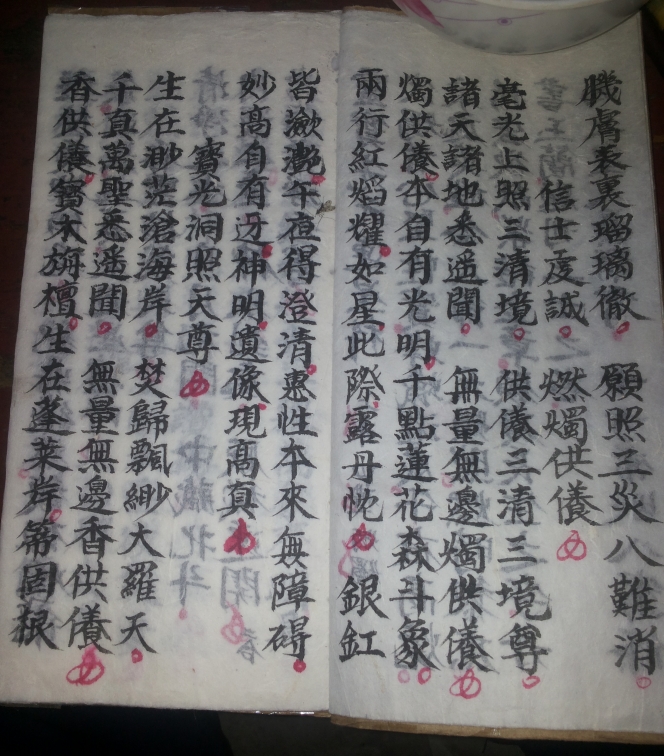 臓膚表裏瑠璃徹 願照三災八難消
信士虔誠 燃燭供養
毫光上照三清境 供養三清三境尊
諸天諸地悉遥聞 無量無邊燭供養
燭供養本自有光明千點蓮花森斗象
兩行紅焰耀如星此際露丹忱 銀缸
皆瀲灧午夜得澄清惠性本來無障碍
妙高自有迓神明遺像現高真
寶光洞照天尊
生在渺茫滄海岸 焚歸飄緲大羅天
千真萬聖悉遥聞 無量無邊香供養
香供養寶木旃檀生在蓬莱岸箒固根